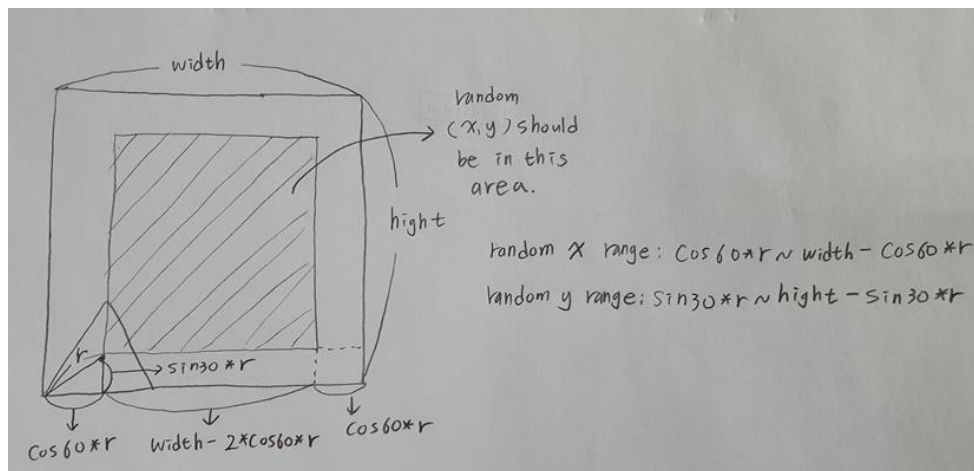 width
random
(x,y) should
be in this
area.
hight
random x range: cos60*r ~ width - cos60*r
random y range: sin30*r ~ hight - sin30*r
r
sin30*r
cos60*r
width - 2*cos60*r
cos60*r